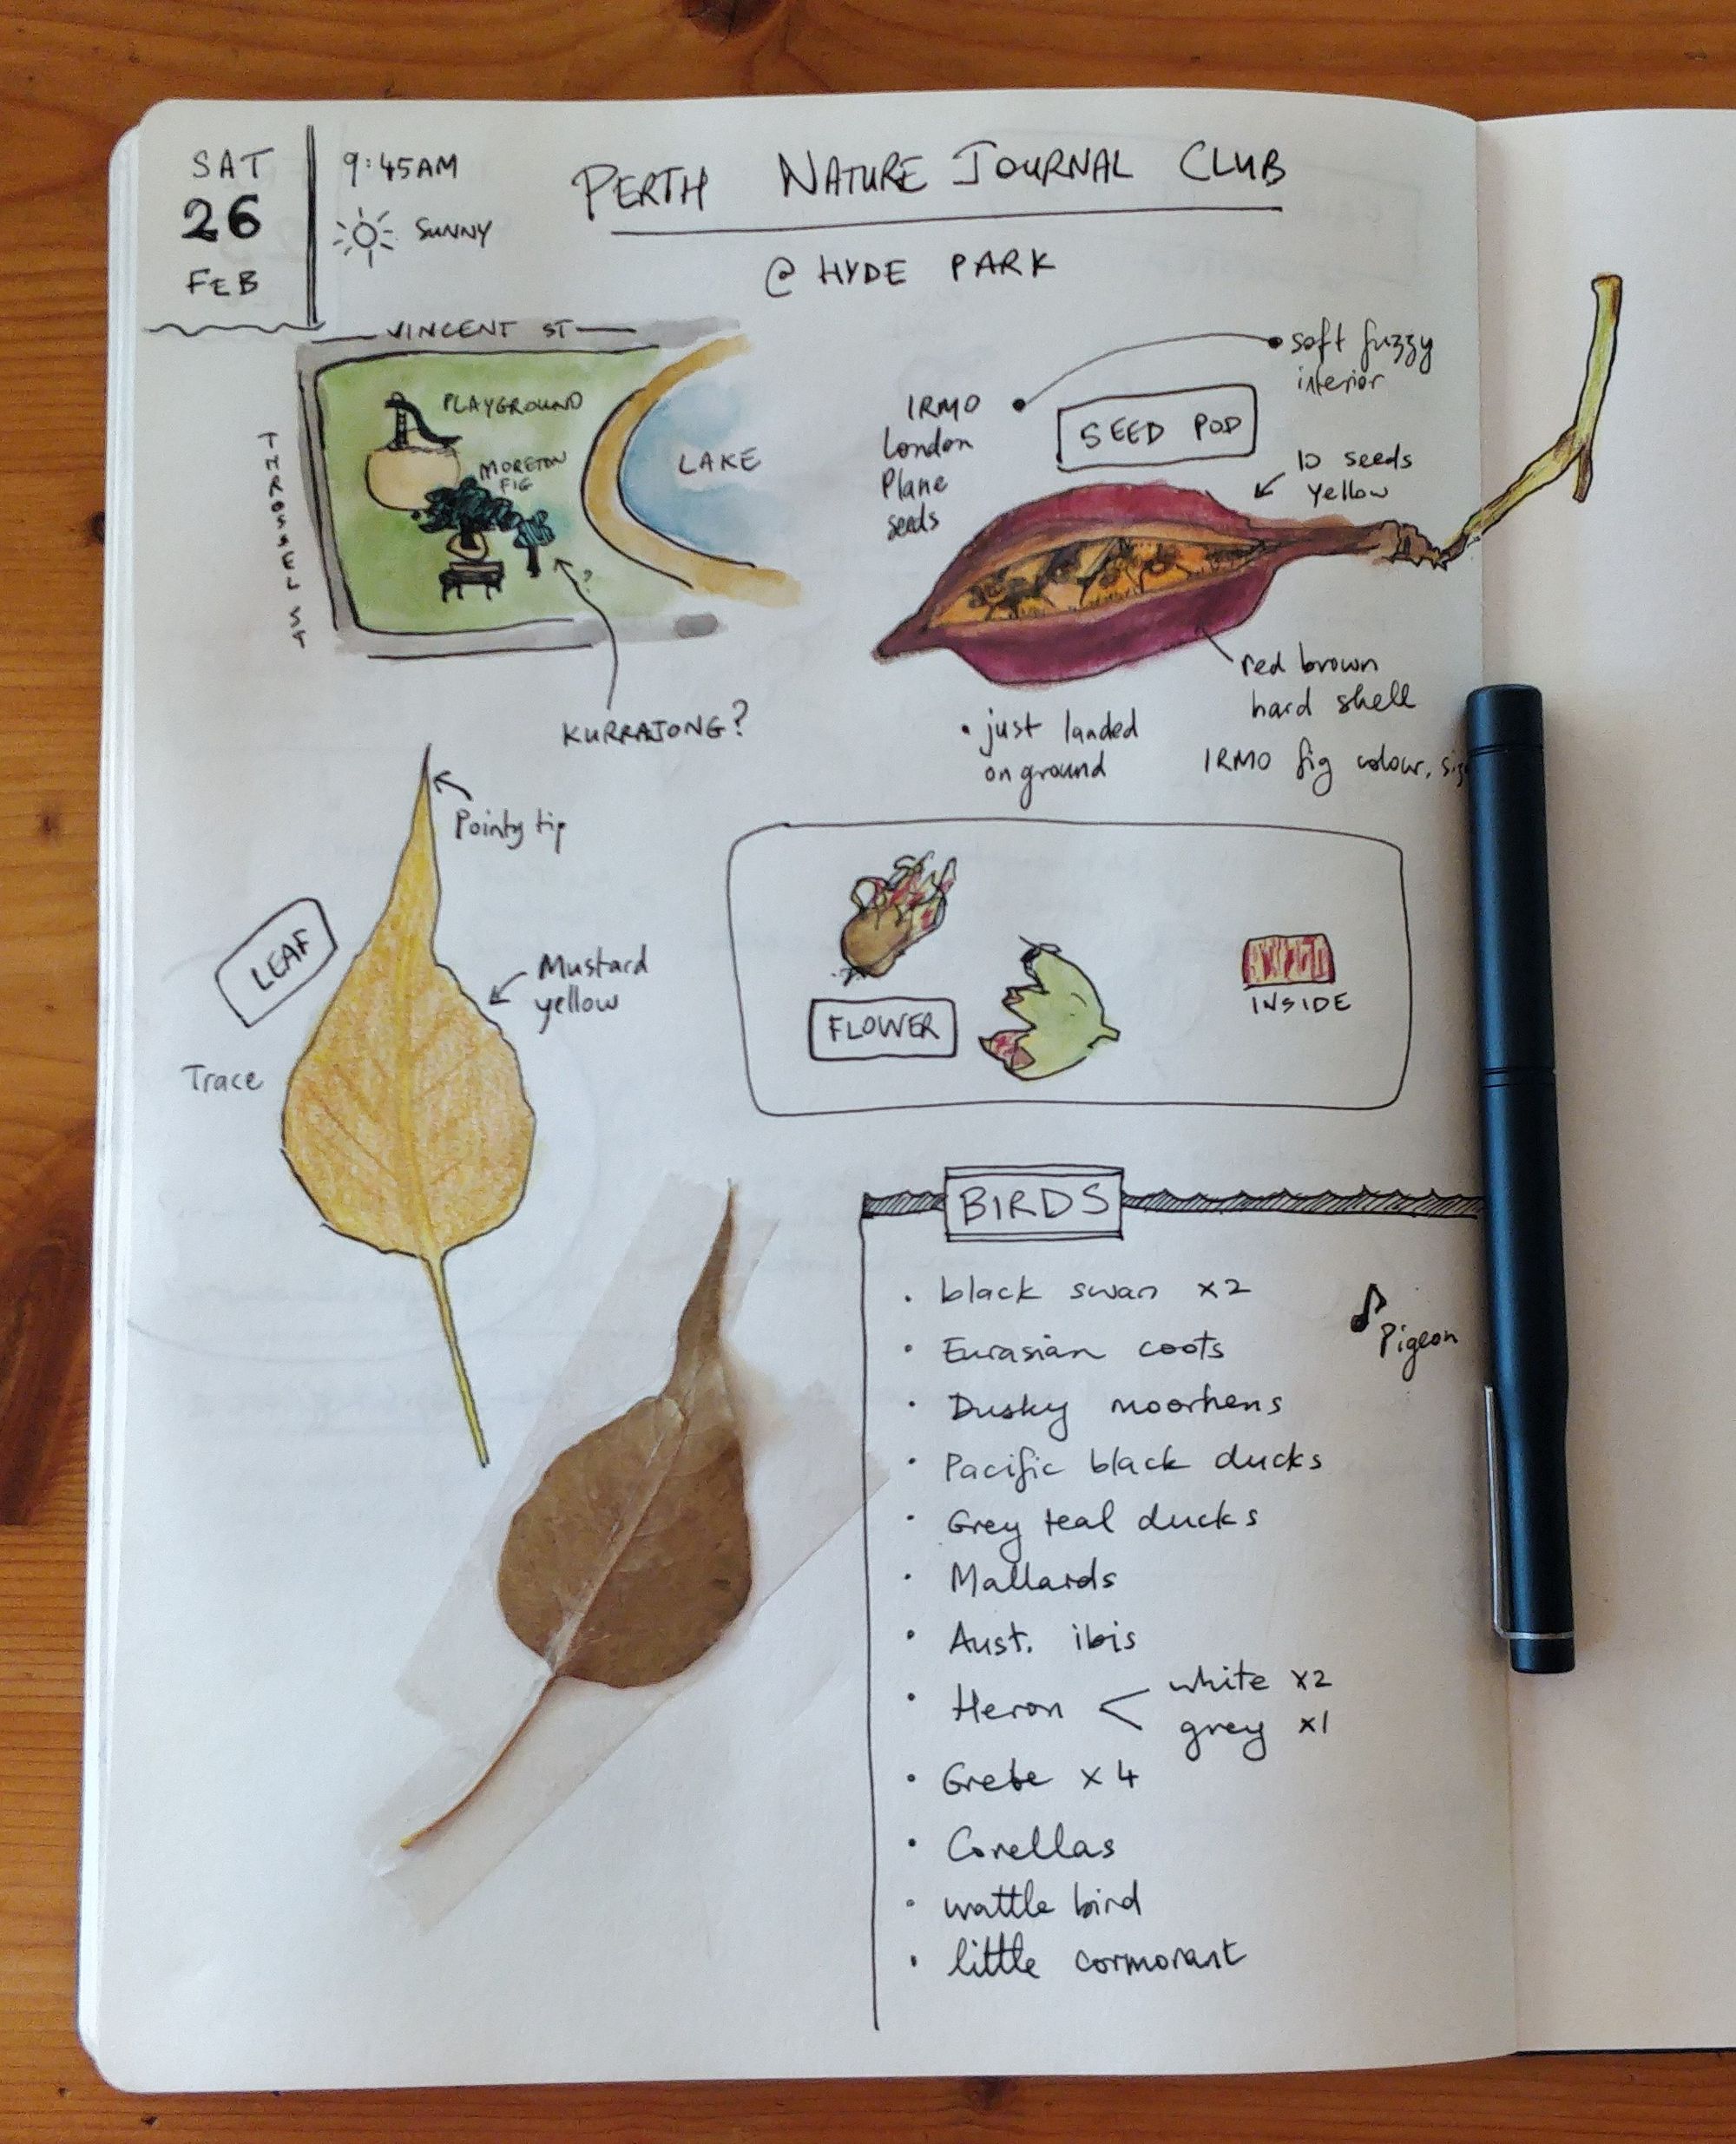 SAT
26
FEB
9:45AM
SUNNY
PERTH NATURE JOURNAL CLUB
@ HYDE PARK
VINCENT ST
THROSSEL ST
PLAYGROUND
MORETON
FIG
LAKE
?
KURRAJONG?
soft fuzzy
interior
IRMO
London
Plane
seeds
SEED POD
10 seeds
yellow
red brown
hard shell
• just landed
on ground
IRMO fig colour,
Pointy tip
LEAF
Mustard
yellow
Trace
FLOWER
INSIDE
BIRDS
• black swan x2
Pigeon
• Eurasian coots
• Dusky moorhens
• Pacific black ducks
• Grey teal ducks
• Mallards
• Aust. ibis
• Heron < white x2
grey x1
• Grebe x 4
• Corellas
• wattle bird
• little cormorant